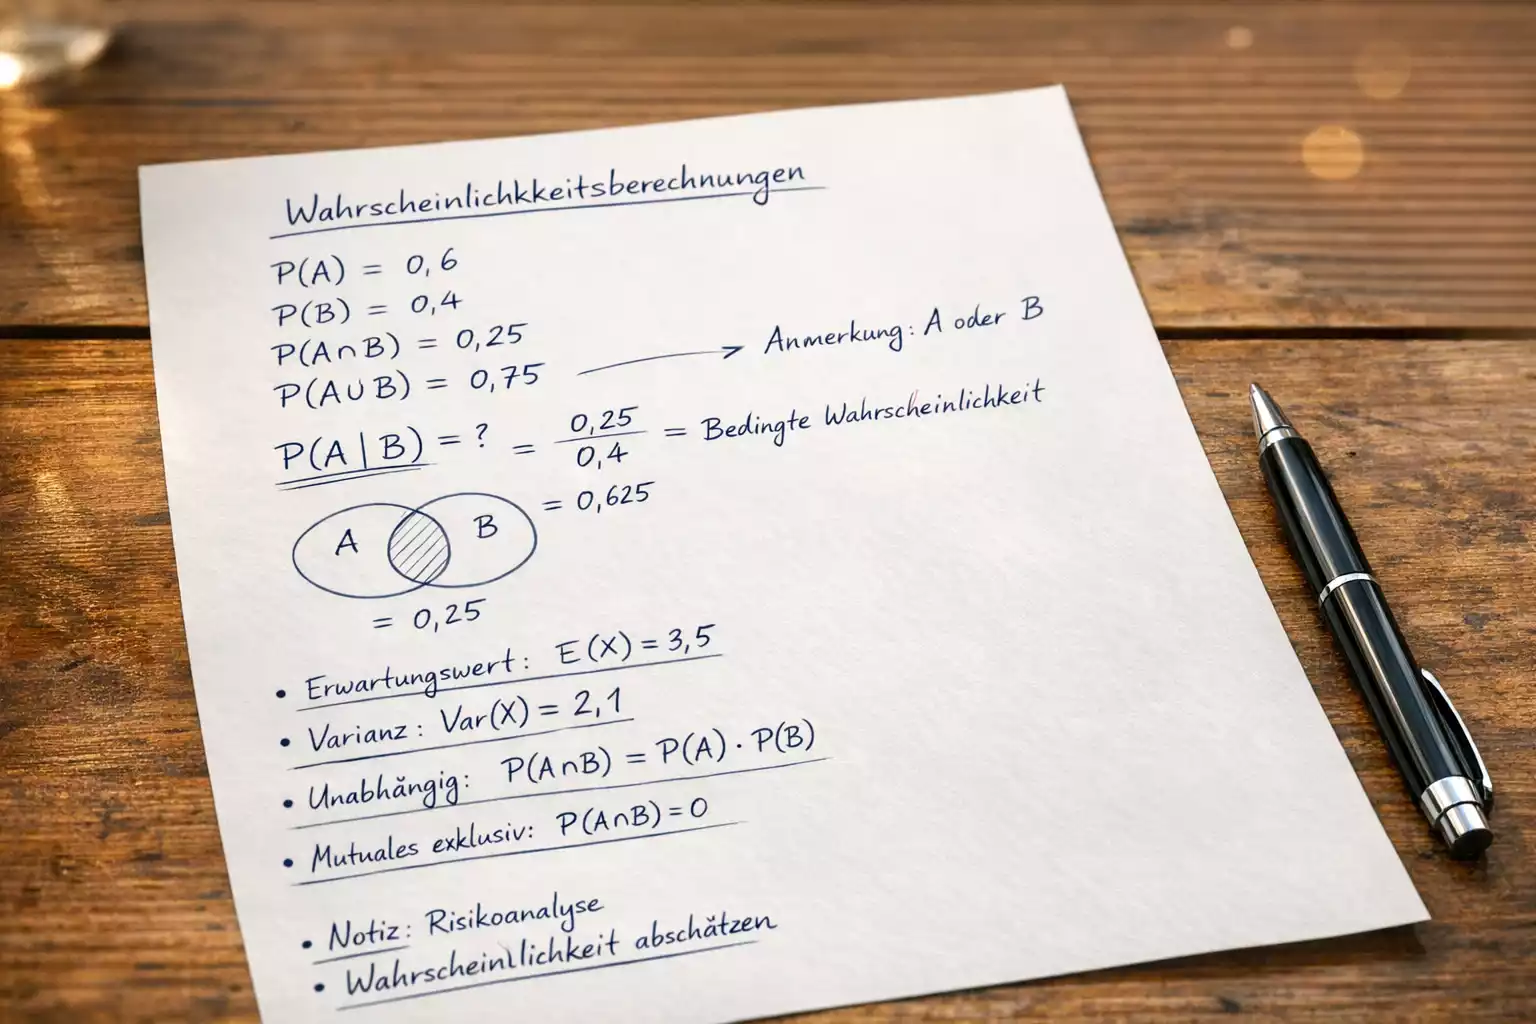 Wahrscheinlichkkeitsberechnungen
P(A) = 0,6
P(B) = 0,4
P(A∩B) = 0,25
P(A∪B) = 0,75 → Anmerkung: A oder B
P(A | B) = ? = 0,25 / 0,4 = Bedingte Wahrscheinlichkeit
= 0,625
A B
= 0,25
• Erwartungswert: E(X) = 3,5
• Varianz: Var(X) = 2,1
• Unabhängig: P(A∩B) = P(A) · P(B)
• Mutuales exklusiv: P(A∩B) = 0
• Notiz: Risikoanalyse
• Wahrscheinllichkeit abschätzen